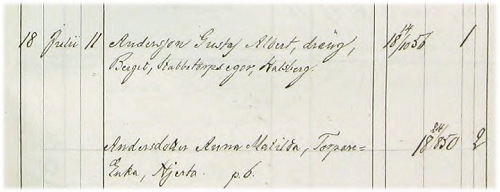 18 Juli 11 Andersson Gustaf Albert, dräng, 18 14/10 56 1
Berget, Stabbetorps egor, Halsberg.
Andersdotter Anna Matilda, Torpare= 18 24/8 50 2
Enka, Hjerta. p. 6.